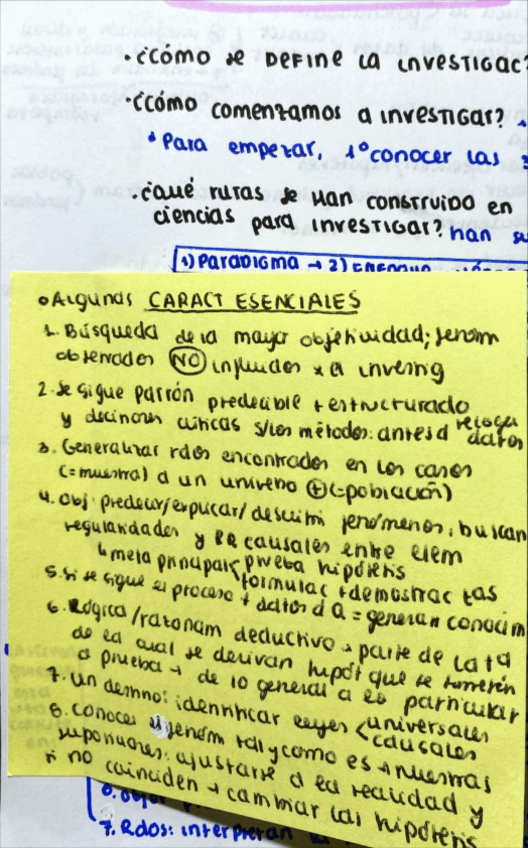 · ¿cómo se DEFINE LA INVESTIGAC
· ¿cómo comenzamos a investigar?
* Para empezar, 1º conocer las
· ¿qué rutas se han construido en
ciencias para investigar? han
1) Paradigma → 2) Enfoque
• Algunas CARACT ESENCIALES
1. Búsqueda de la mayor objetividad; fenóm
observados NO influidos x el investig
2. Se sigue patrón predecible + estructurado
y decisiones críticas s/los métodos: antes d recoger datos
3. Generalizar rdos encontrados en los casos
(=muestra) a un universo (+) (=población)
4. Obj. predecir/explicar/describir fenómenos; buscan
regularidades y causales entre elem
↳ meta principal < prueba hipótesis
formulac + demostrac tas
5. si se sigue el proceso + datos d Q = generan conocim
6. Lógica/razonam deductivo → parte de la tª
de la cual se derivan hipót que se someterán
a prueba → de lo general a lo particular
7. un destino: identificar leyes < universales
causales
8. conocer el fenóm tal y como es + nuestras
suposiciones: ajustarse a la realidad y
si no coinciden → cambiar las hipótesis
7. Rdos: interpretan